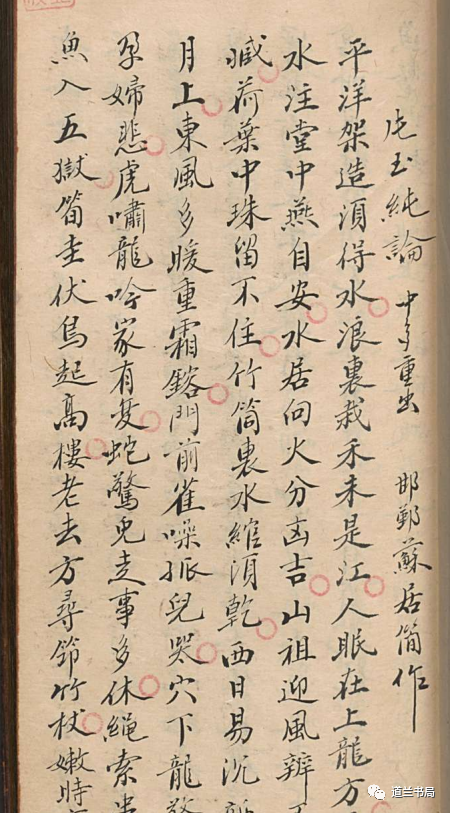 玉純論 中多重出 邯鄲蘇居簡作
平洋架造須得水浪裏栽禾未是江人眠在上龍方
水注堂中燕自安水居向火分凶吉山祖迎風辨
荷葉中珠留不住竹筒裏水須乾西日易沉
月上東風多暖重霜鎔門前雀噪孤兒哭穴下龍
孕婦悲虎嘯龍吟家有蛇驚兔走事多休繩索
魚入五獄伏鳥起高樓老去方尋節竹杖嫩時
道兰书局